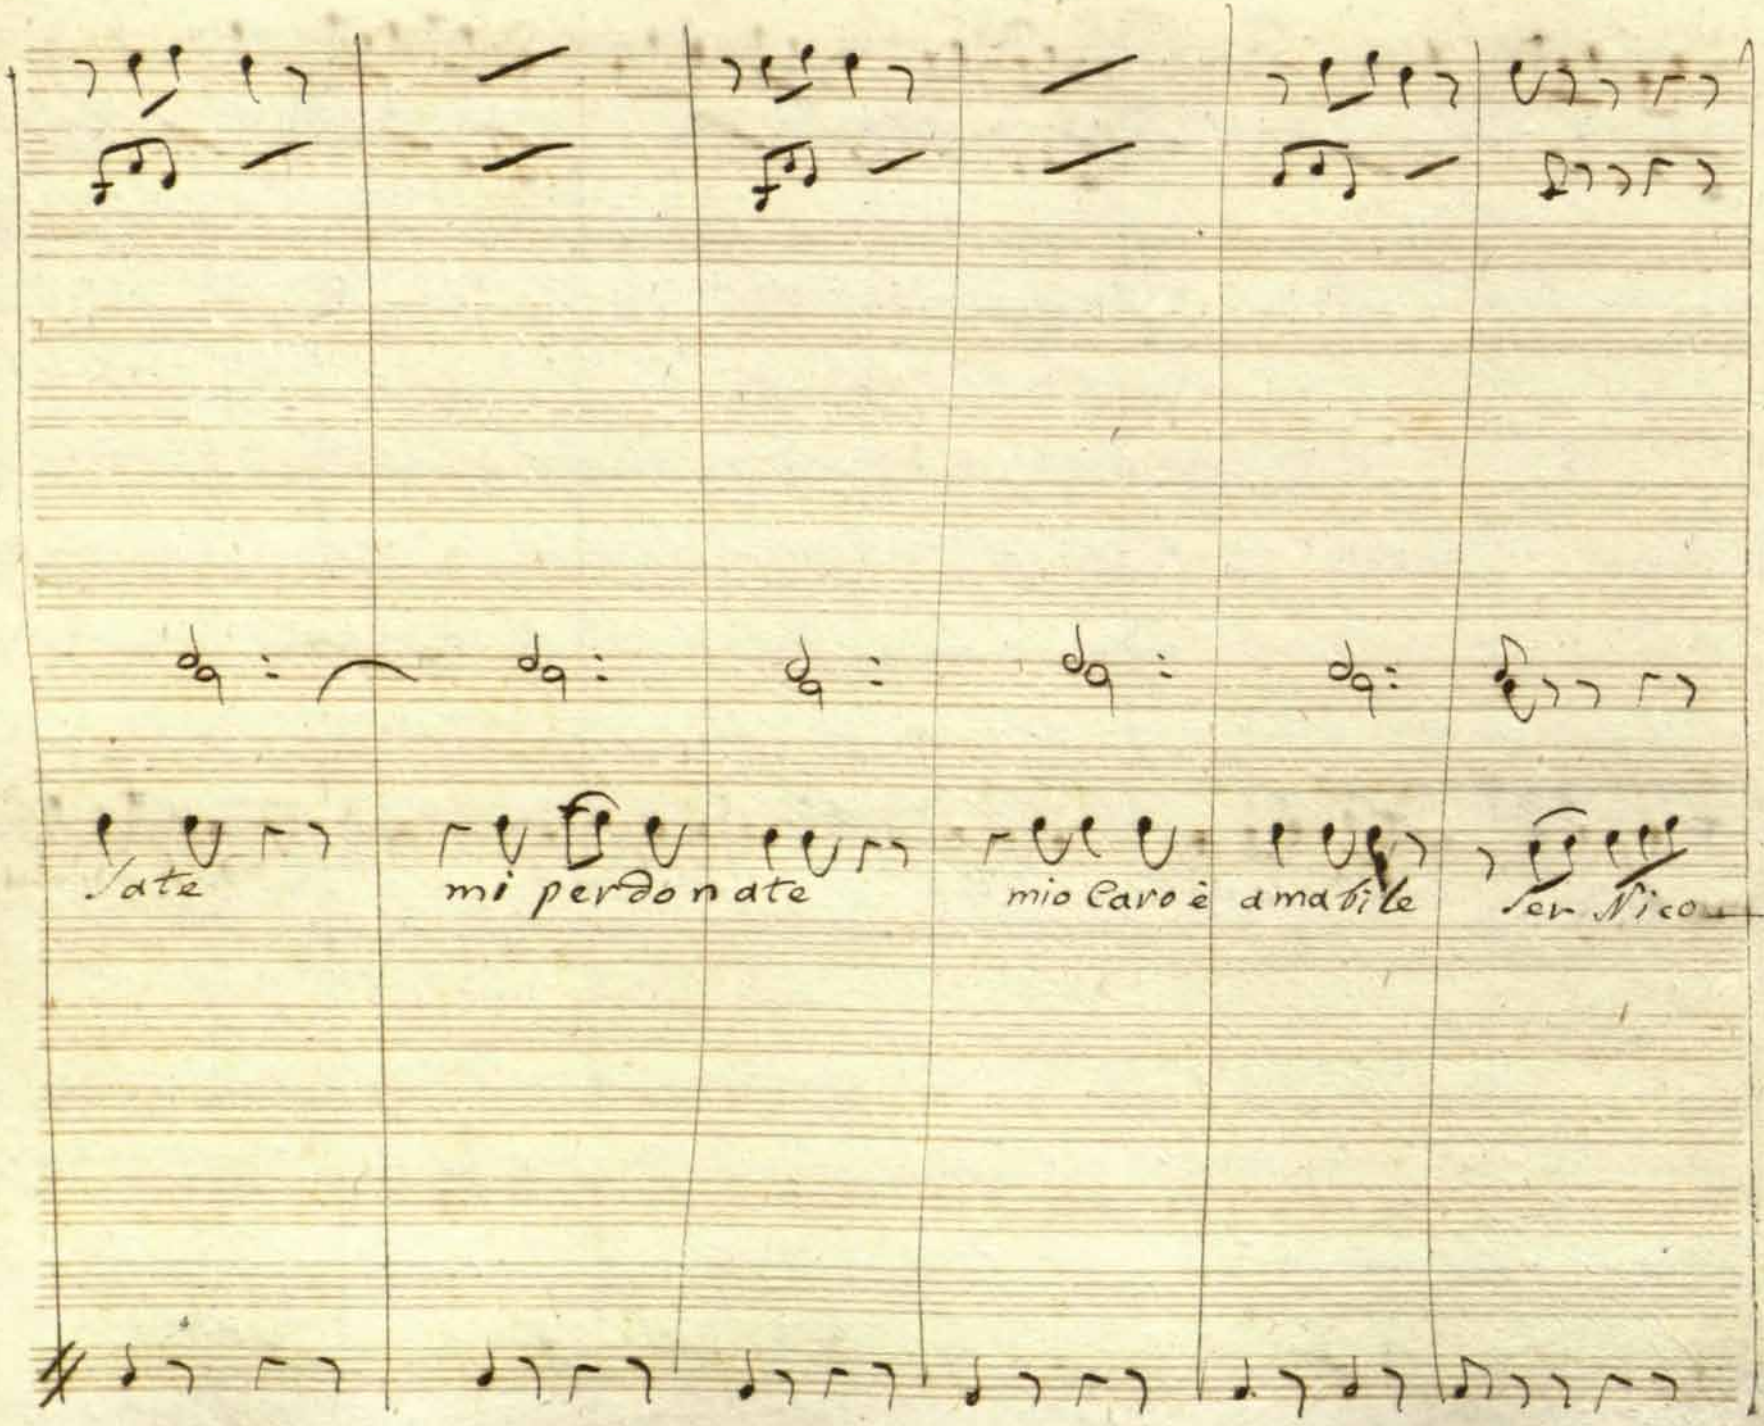 sate mi perdonate mio Caro è amabile ser Nico